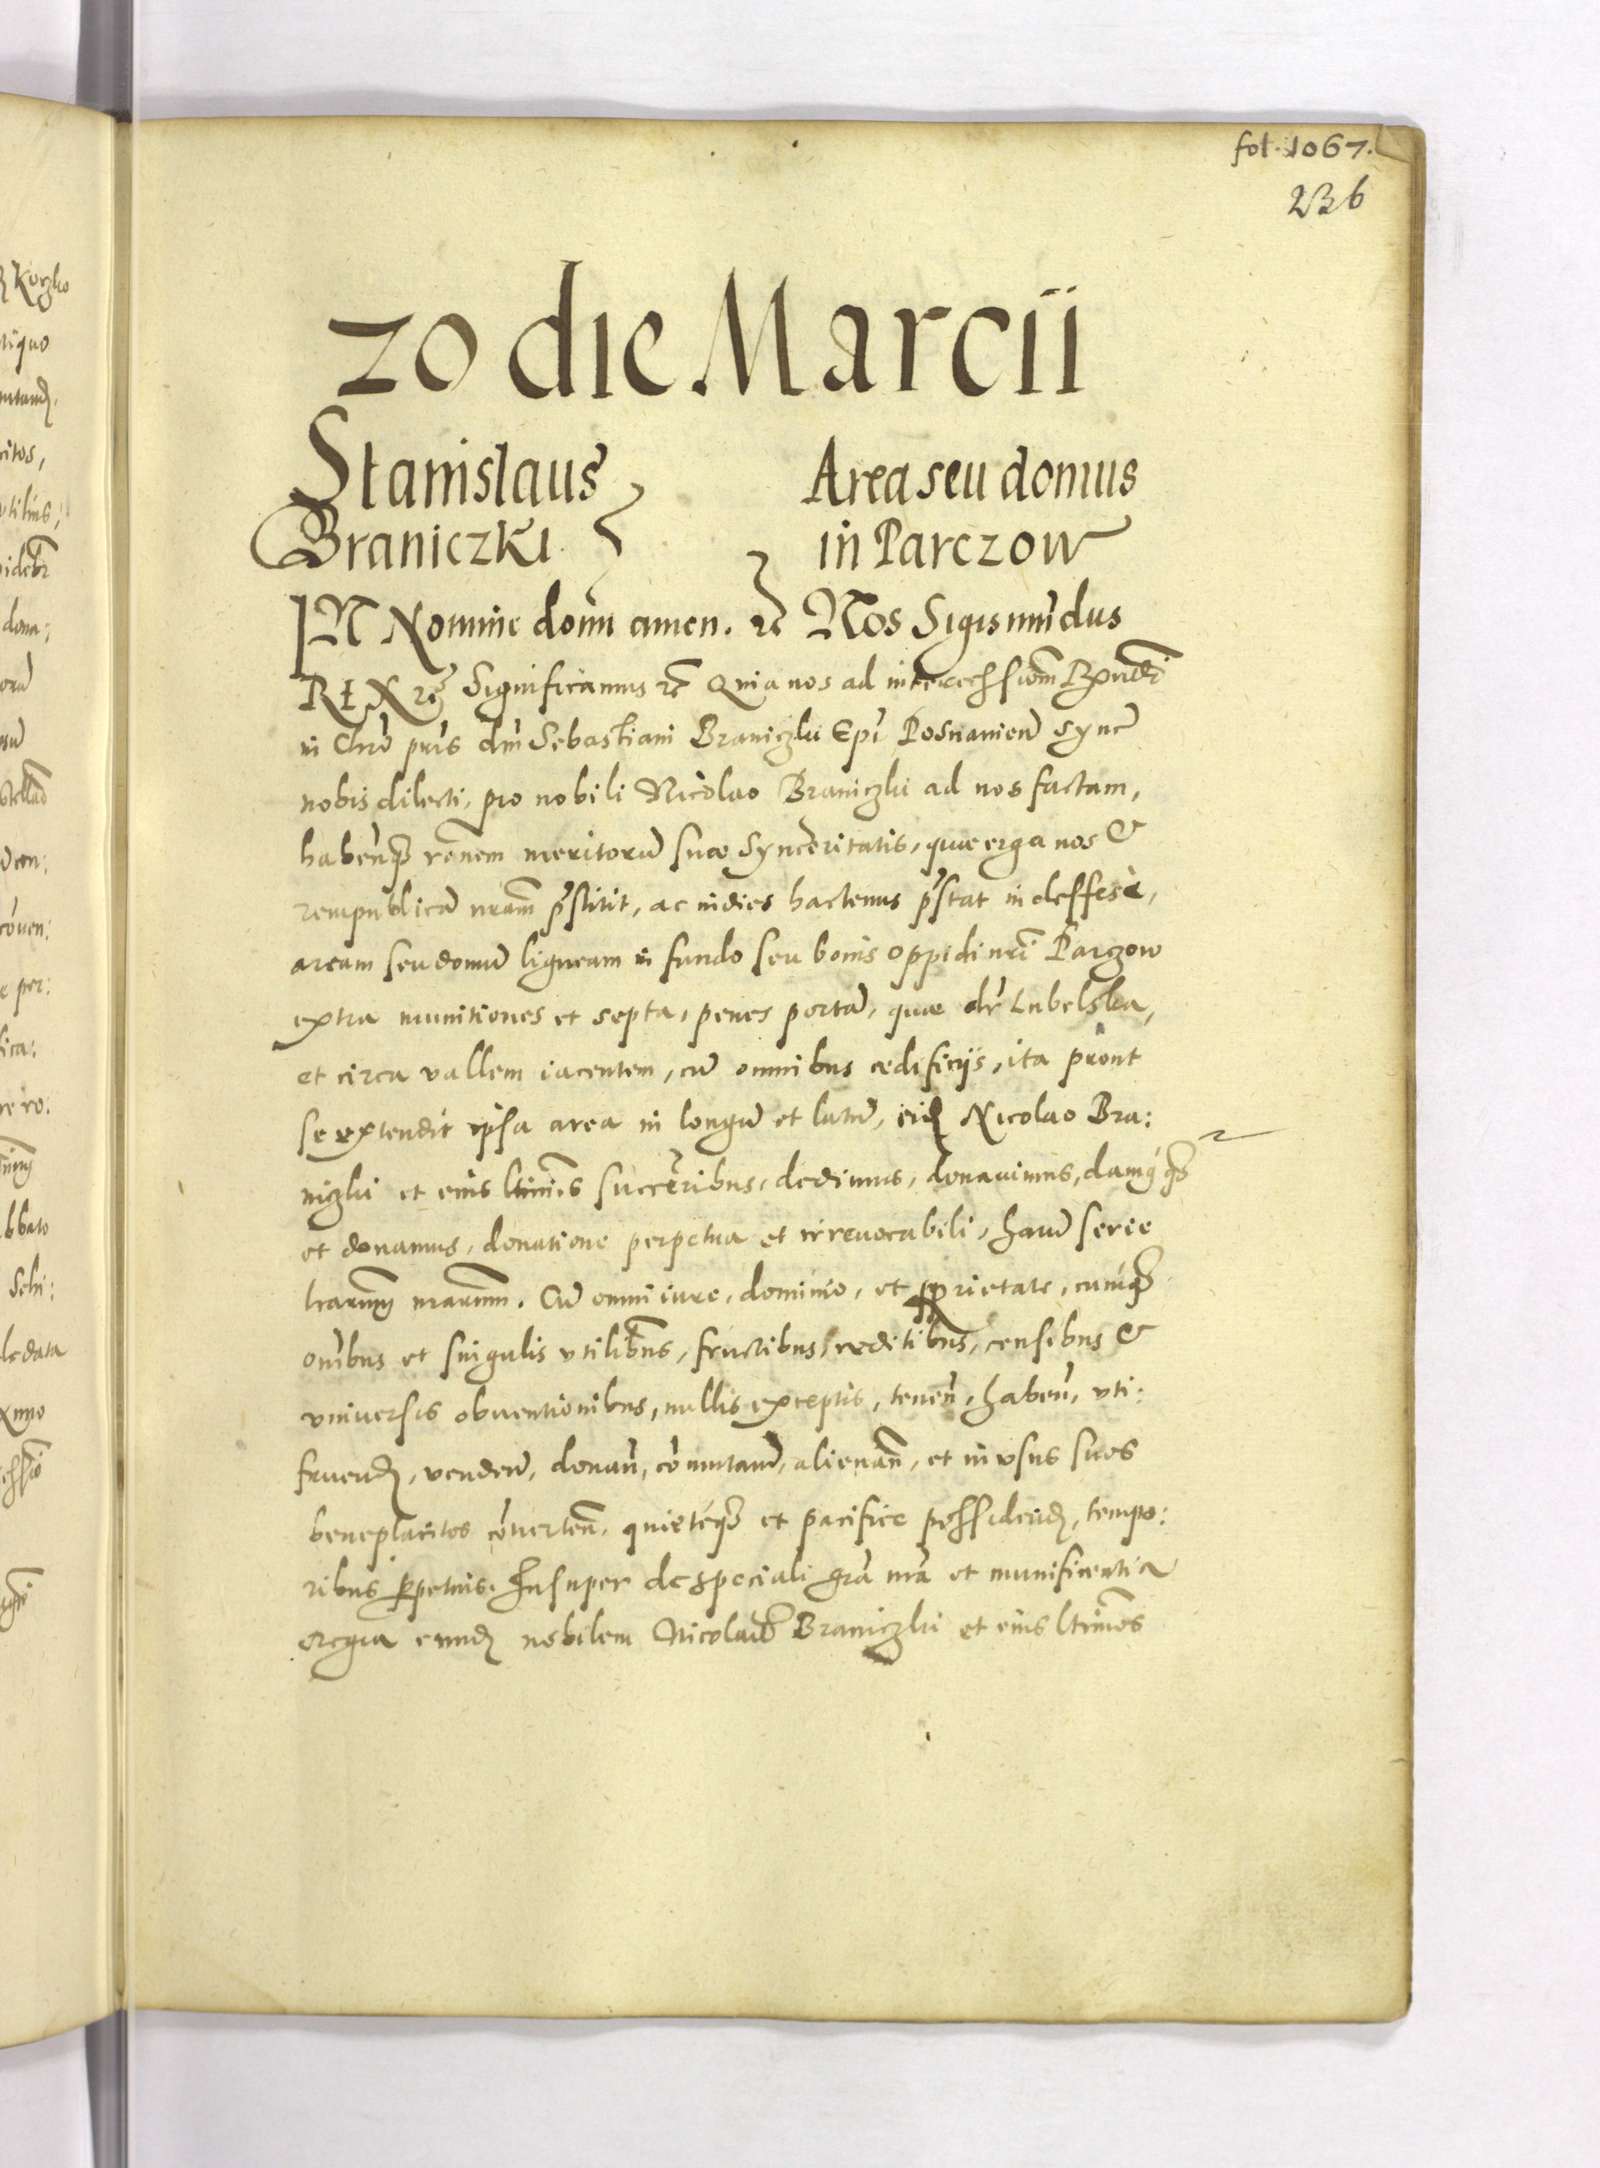 fol. 1067.
236
20 die Marcii
Stanislaus
Braniczki
Area seu domus
in Parczow
IN Nomine domi amen. etc Nos Sigismundus
REX etc Significamus etc Quia nos ad intercessiom Rxndi
in Chro pris dni Sebastiani Braniczki Epi Posnanien Sync
nobis dilecti, pro nobili Nicolao Braniczki ad nos factam,
habenq ronem meritoru suae Synceritatis, quae erga nos &
rempublica nram pstitit, ac indies hactenus pstat indeffese,
aream seu domu ligneam in fundo seu bonis oppidi nri Parczow
extra munitiones et septa, penes porta, quae dr Lubelska,
et circa vallem iacentem, cu omnibus aedificijs, ita prout
se extendit ipsa area in longu et latu, eid Nicolao Bra:
niczki et eius ltimis succeribus, dedimus, donavimus, damusq
et donamus, donatione perpetua et irrevocabili, harum serie
lrarum nrarum. Cu omni iure, dominio, et proprietate, cunctisq
onibus et singulis utilibus, fructibus, reditibus, censibus &
universis obventionibus, nullis exceptis, tenen, haben, uti:
fruend, venden, donan, comutan, alienan, et in usus suos
beneplacitos converten, quieteq et pacifice possidend, tempo:
ribus perpetuis. Insuper de speciali gra nra et munificentia
regia eund nobilem Nicolau Braniczki et eius ltimos